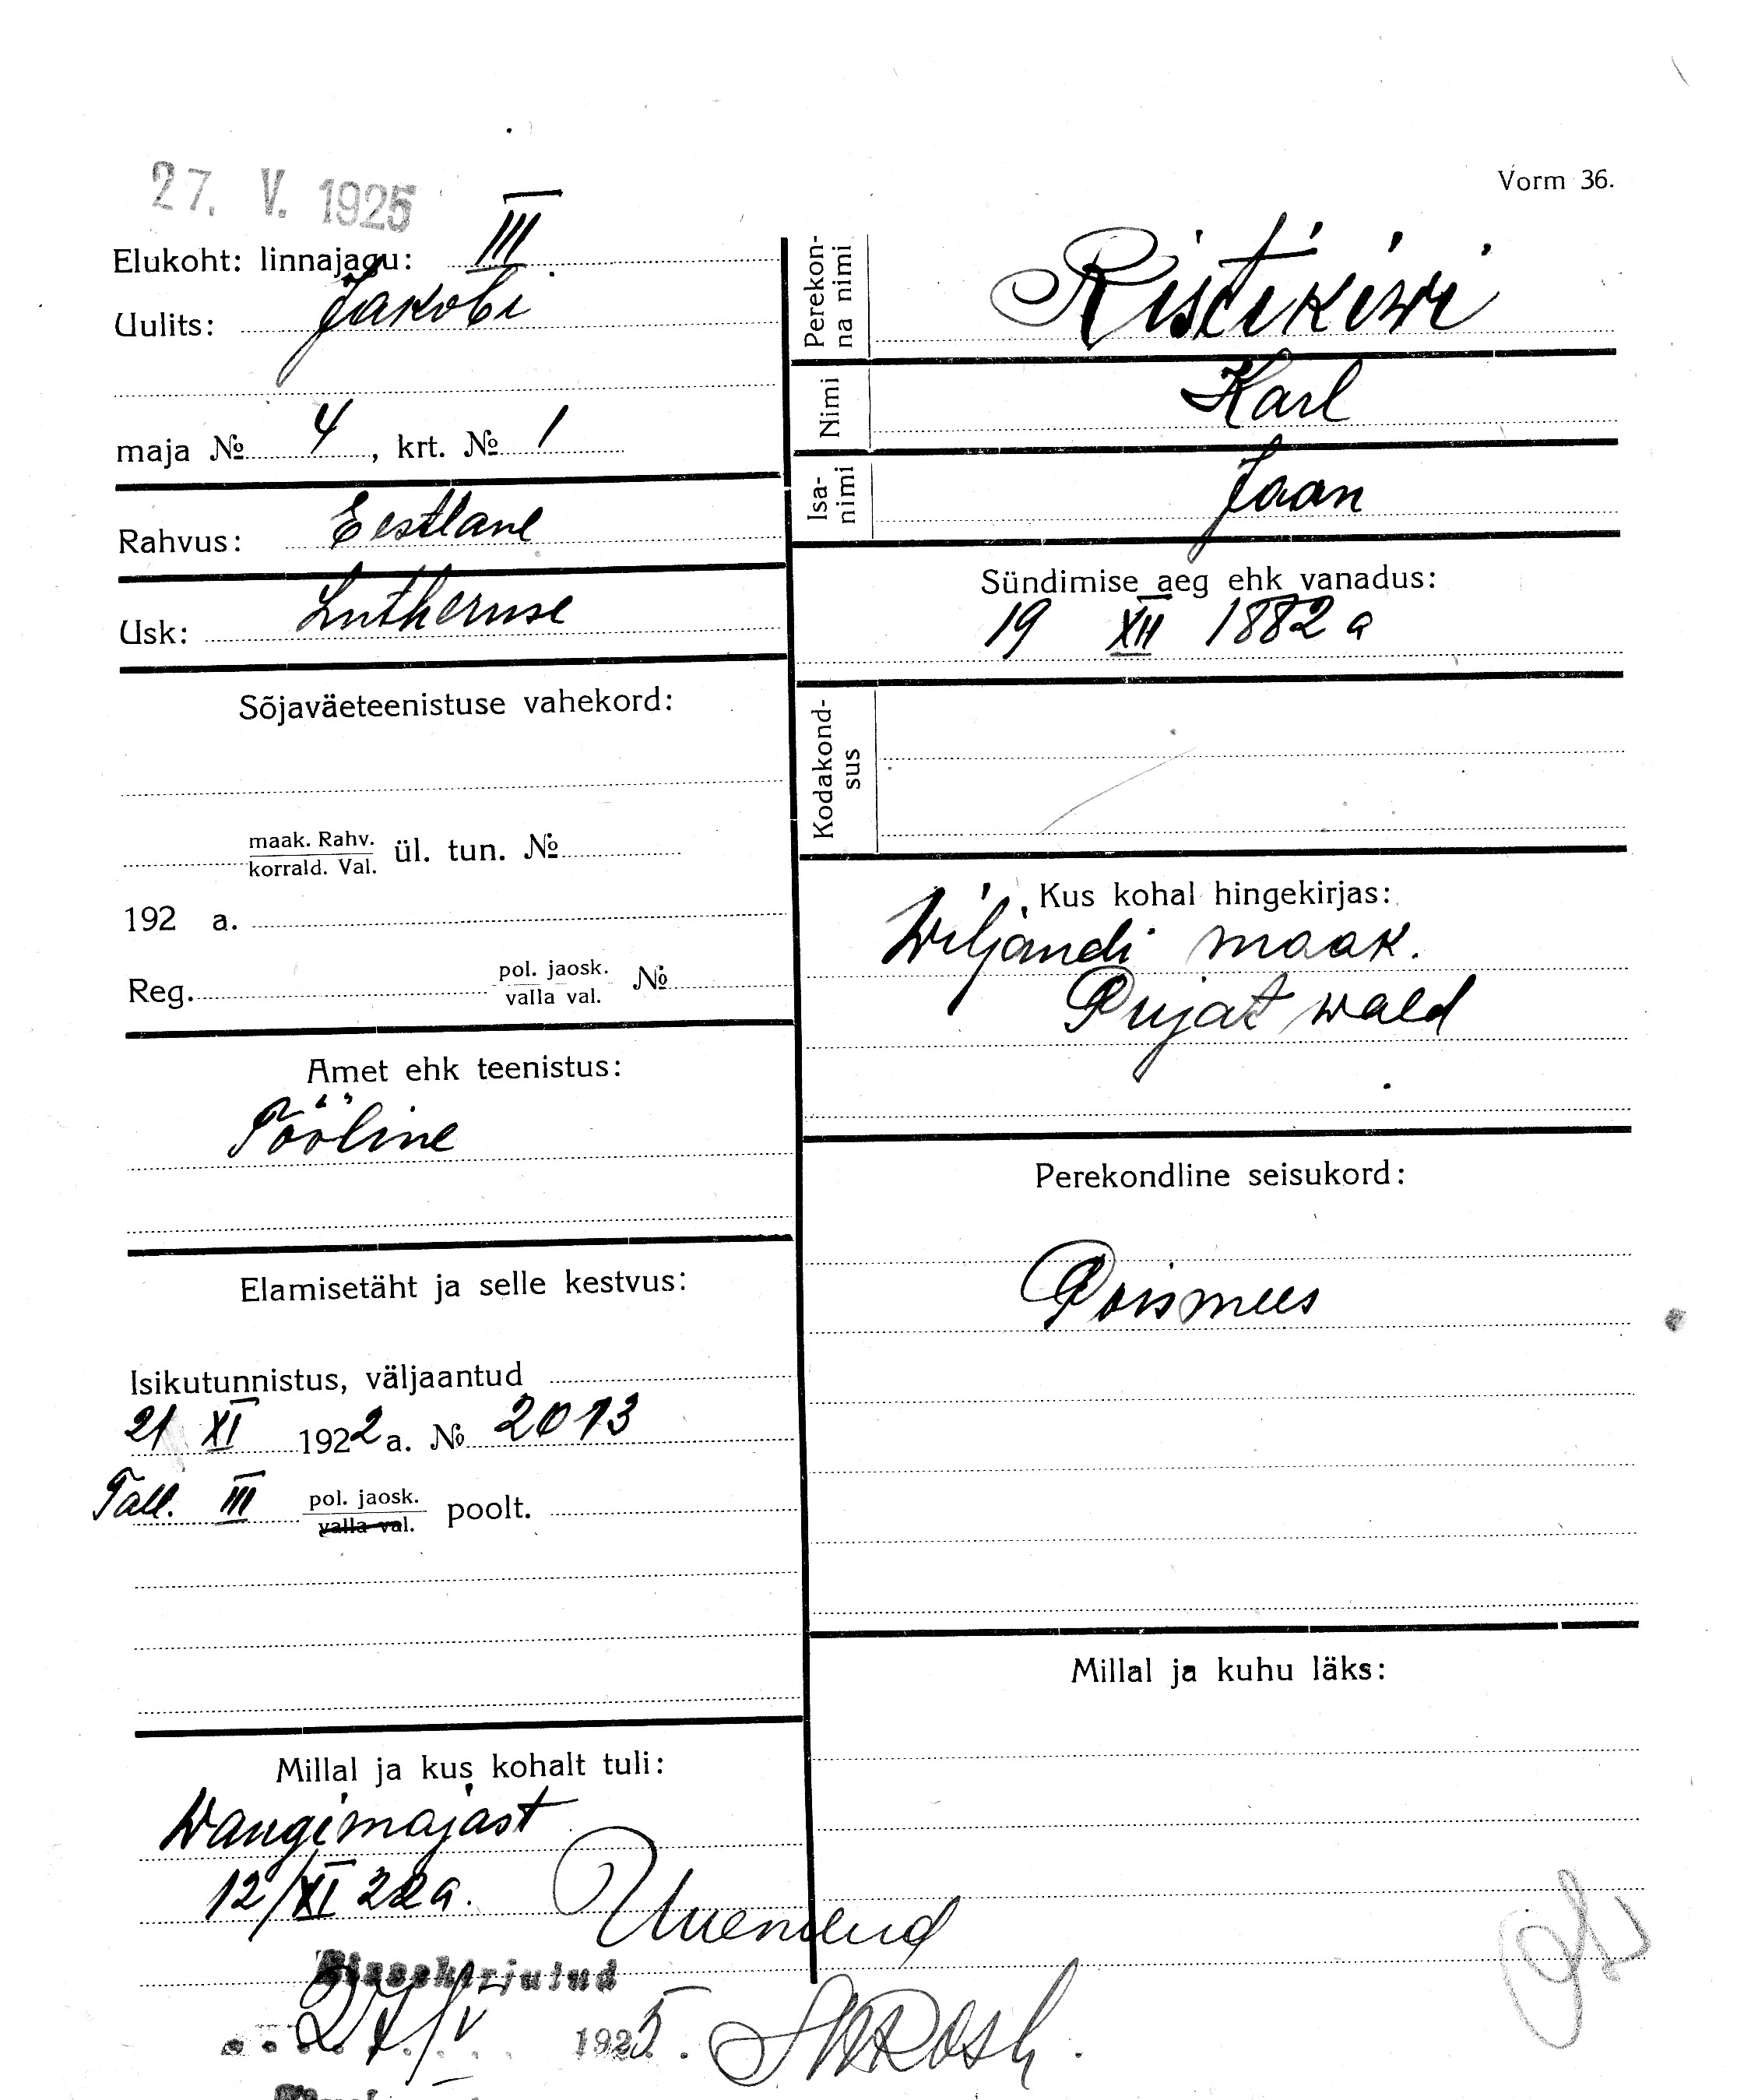 27. V. 1925
Vorm 36.
Elukoht: linnajagu: III
Uulits: Jakobi
maja № 4, krt. № 1
Rahvus: Eestlane
Usk: Lutheruse
Sõjaväeteenistuse vahekord:
maak. Rahv.
korrald. Val. ül. tun. №
192 a.
Reg. pol. jaosk.
valla val. №
Amet ehk teenistus:
Tööline
Elamisetäht ja selle kestvus:
Isikutunnistus, väljaantud
21 XI 1922 a. № 2013
Tall. III pol. jaosk.
valla val. poolt.
Millal ja kus kohalt tuli:
Wangimajast
12/XI 22 a.
Uuendud
Sissekirjutud
27/V 1925.
Perekon-
na nimi
Ristikiwi
Nimi
Karl
Isa-
nimi
Jaan
Sündimise aeg ehk vanadus:
19 XII 1882 a
Kodakond-
sus
Kus kohal hingekirjas:
Wiljandi maak.
Pujat wald
Perekondline seisukord:
Poismees
Millal ja kuhu läks: